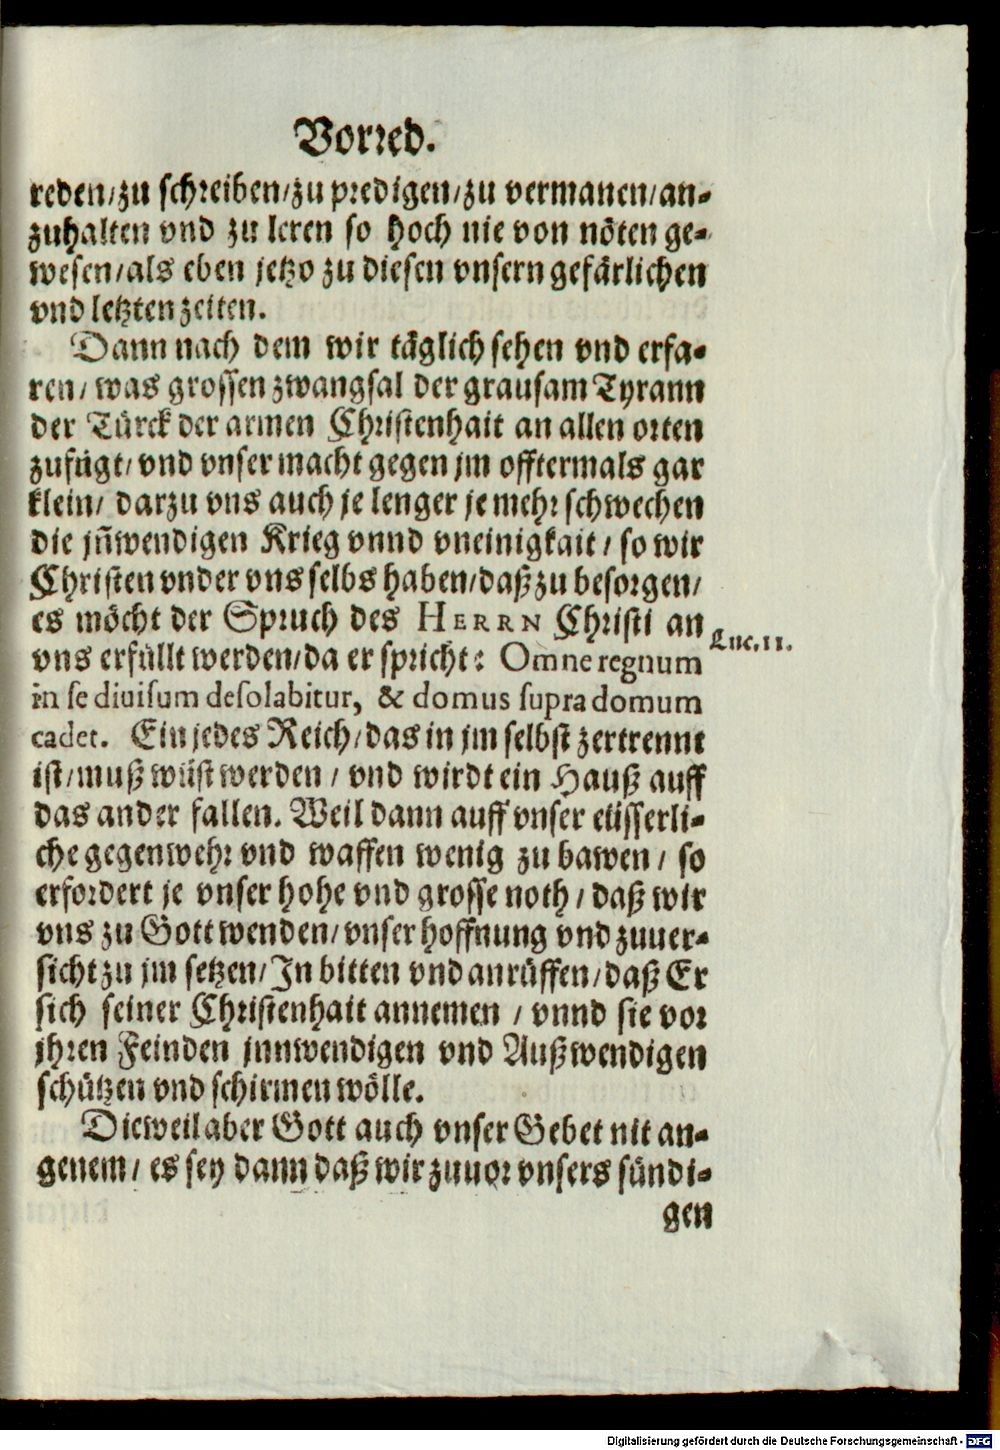 Vorred.
reden/zu schreiben/zu predigen/zu vermanen/an-
zuhalten vnd zu leren so hoch nie von nöten ge-
wesen/als eben jetzo zu diesen vnsern gefärlichen
vnd letzten zeiten.
Dann nach dem wir täglich sehen vnd erfa-
ren/ was grossen zwangsal der grausam Tyrann
der Türck der armen Christenhait an allen orten
zufügt/ vnd vnser macht gegen jm offtermals gar
klein/ darzu vns auch je lenger je mehr schwechen
die jn̄wendigen Krieg vnnd vneinigkait / so wir
Christen vnder vns selbs haben/daß zu besorgen/
es möcht der Spruch des HERRN Christi an
vns erfüllt werden/da er spricht: Omne regnum
Luc. 11.
in se diuisum desolabitur, & domus supra domum
cadet. Ein jedes Reich/das in jm selbst zertrennt
ist/muß wüst werden / vnd wirdt ein Hauß auff
das ander fallen. Weil dann auff vnser eüsserli-
che gegenwehr vnd waffen wenig zu bawen / so
erfordert je vnser hohe vnd grosse noth / daß wir
vns zu Gott wenden/vnser hoffnung vnd zuuer-
sicht zu jm setzen/ In bitten vnd anrüffen/daß Er
sich seiner Christenhait annemen / vnnd sie vor
jhren Feinden jnnwendigen vnd Außwendigen
schützen vnd schirmen wölle.
Dieweil aber Gott auch vnser Gebet nit an-
genem/ es sey dann daß wir zuuor vnsers sündi-
gen
Digitalisierung gefördert durch die Deutsche Forschungsgemeinschaft - DFG